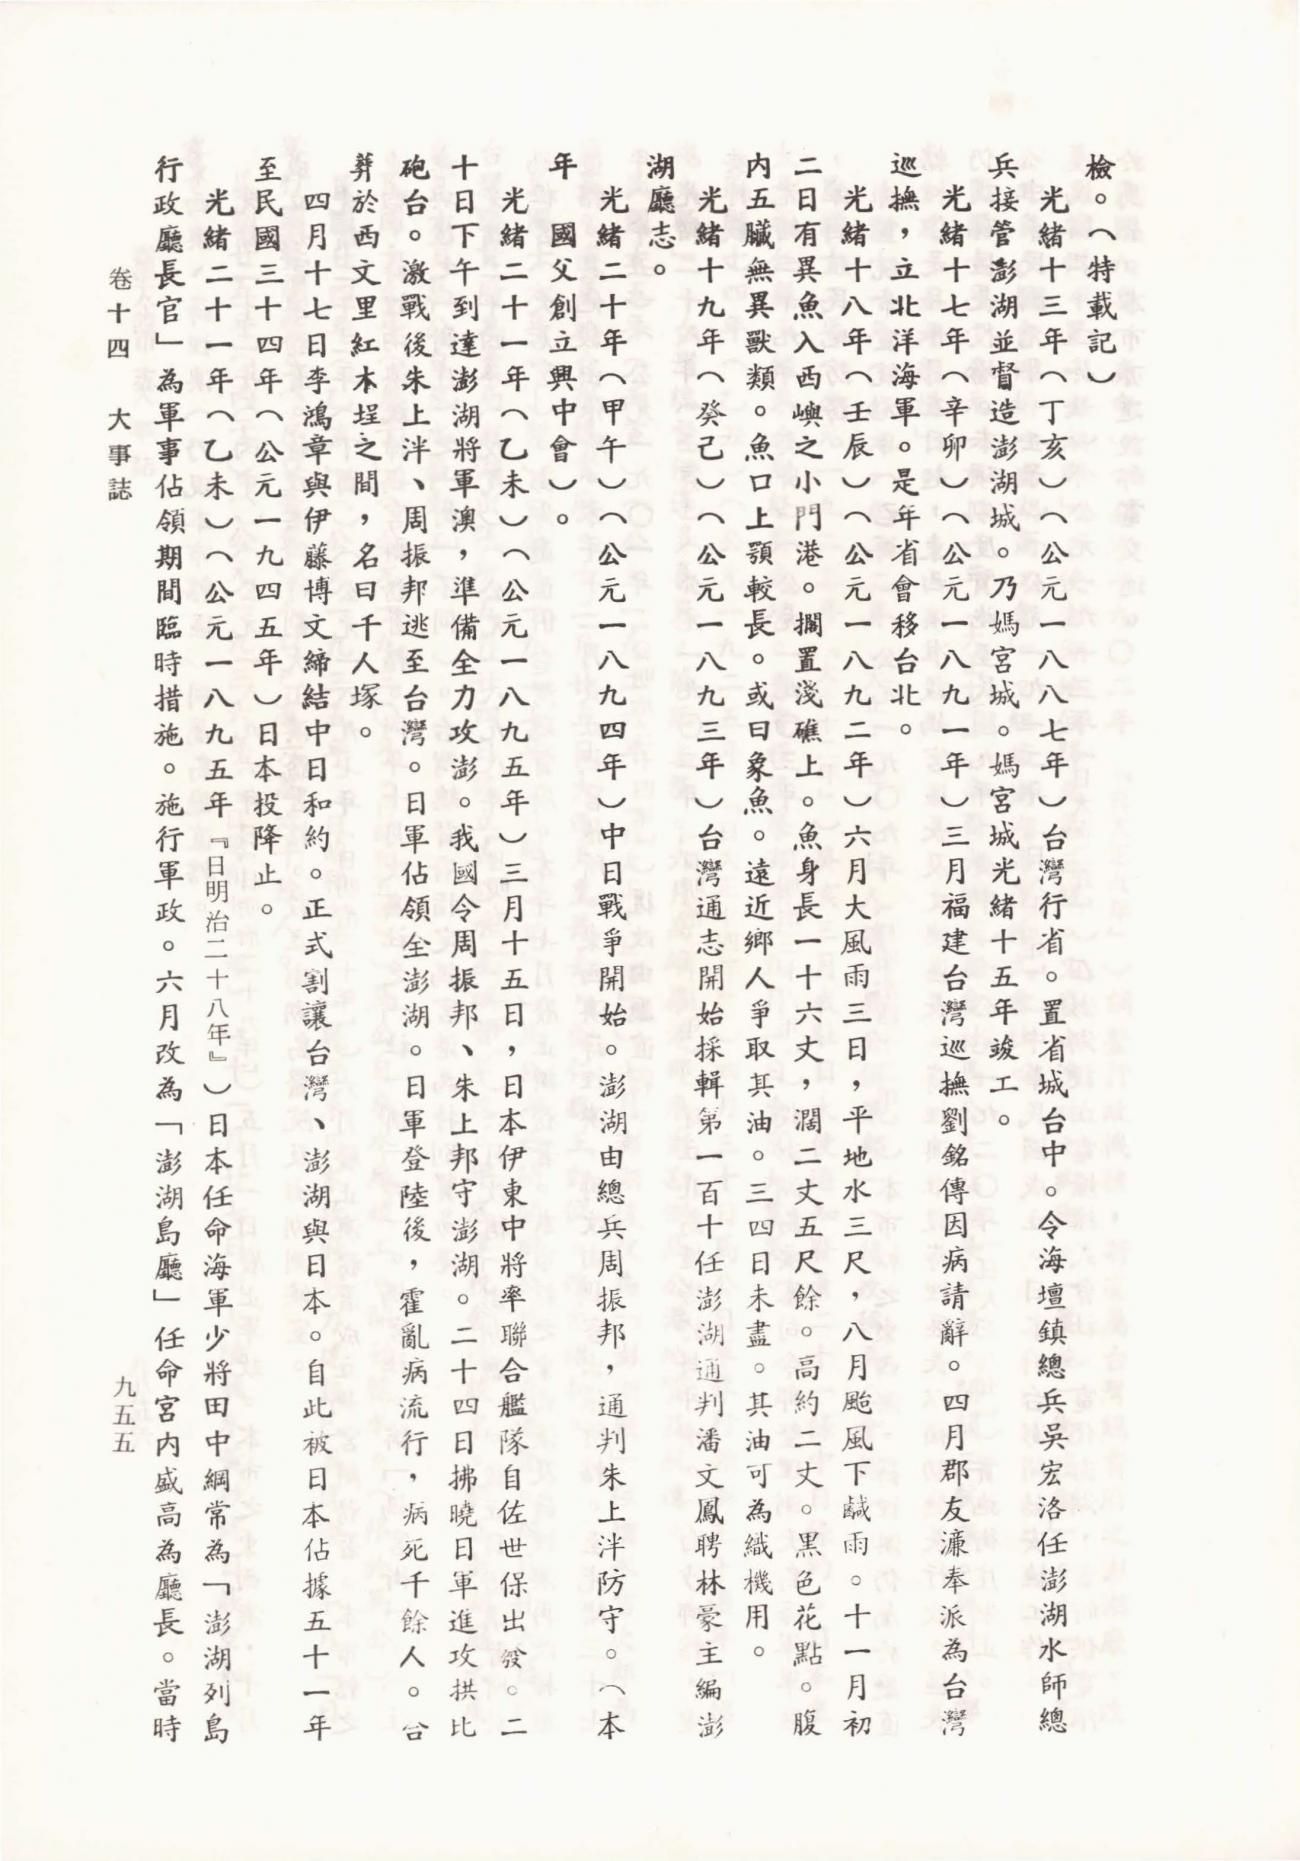 檢。（特載記）
光緒十三年（丁亥）（公元一八八七年）台灣行省。置省城台中。令海壇鎮總兵吳宏洛任澎湖水師總
兵接管澎湖並督造澎湖城。乃媽宮城。媽宮城光緒十五年竣工。
光緒十七年（辛卯）（公元一八九一年）三月福建台灣巡撫劉銘傳因病請辭。四月郡友濂奉派為台灣
巡撫，立北洋海軍。是年省會移台北。
光緒十八年（壬辰）（公元一八九二年）六月大風雨三日，平地水三尺，八月颱風下鹹雨。十一月初
二日有異魚入西嶼之小門港。擱置淺礁上。魚身長一十六丈，濶二丈五尺餘。高約二丈。黑色花點。腹
內五臟無異獸類。魚口上顎較長。或曰象魚。遠近鄉人爭取其油。三四日未盡。其油可為織機用。
光緒十九年（癸己）（公元一八九三年）台灣通志開始採輯第一百十任澎湖通判潘文鳳聘林豪主編澎
湖廳志。
光緒二十年（甲午）（公元一八九四年）中日戰爭開始。澎湖由總兵周振邦，通判朱上泮防守。（本
年　國父創立興中會）。
光緒二十一年（乙未）（公元一八九五年）三月十五日，日本伊東中將率聯合艦隊自佐世保出發。二
十日下午到達澎湖將軍澳，準備全力攻澎。我國令周振邦、朱上邦守澎湖。二十四日拂曉日軍進攻拱比
砲台。激戰後朱上泮、周振邦逃至台灣。日軍佔領全澎湖。日軍登陸後，霍亂病流行，病死千餘人。合
葬於西文里紅木埕之間，名曰千人塚。
四月十七日李鴻章與伊藤博文締結中日和約。正式割讓台灣、澎湖與日本。自此被日本佔據五十一年
至民國三十四年（公元一九四五年）日本投降止。
光緒二十一年（乙未）（公元一八九五年『日明治二十八年』）日本任命海軍少將田中綱常為「澎湖列島
行政廳長官」為軍事佔領期間臨時措施。施行軍政。六月改為「澎湖島廳」任命宮內盛高為廳長。當時
卷十四　大事誌
九五五